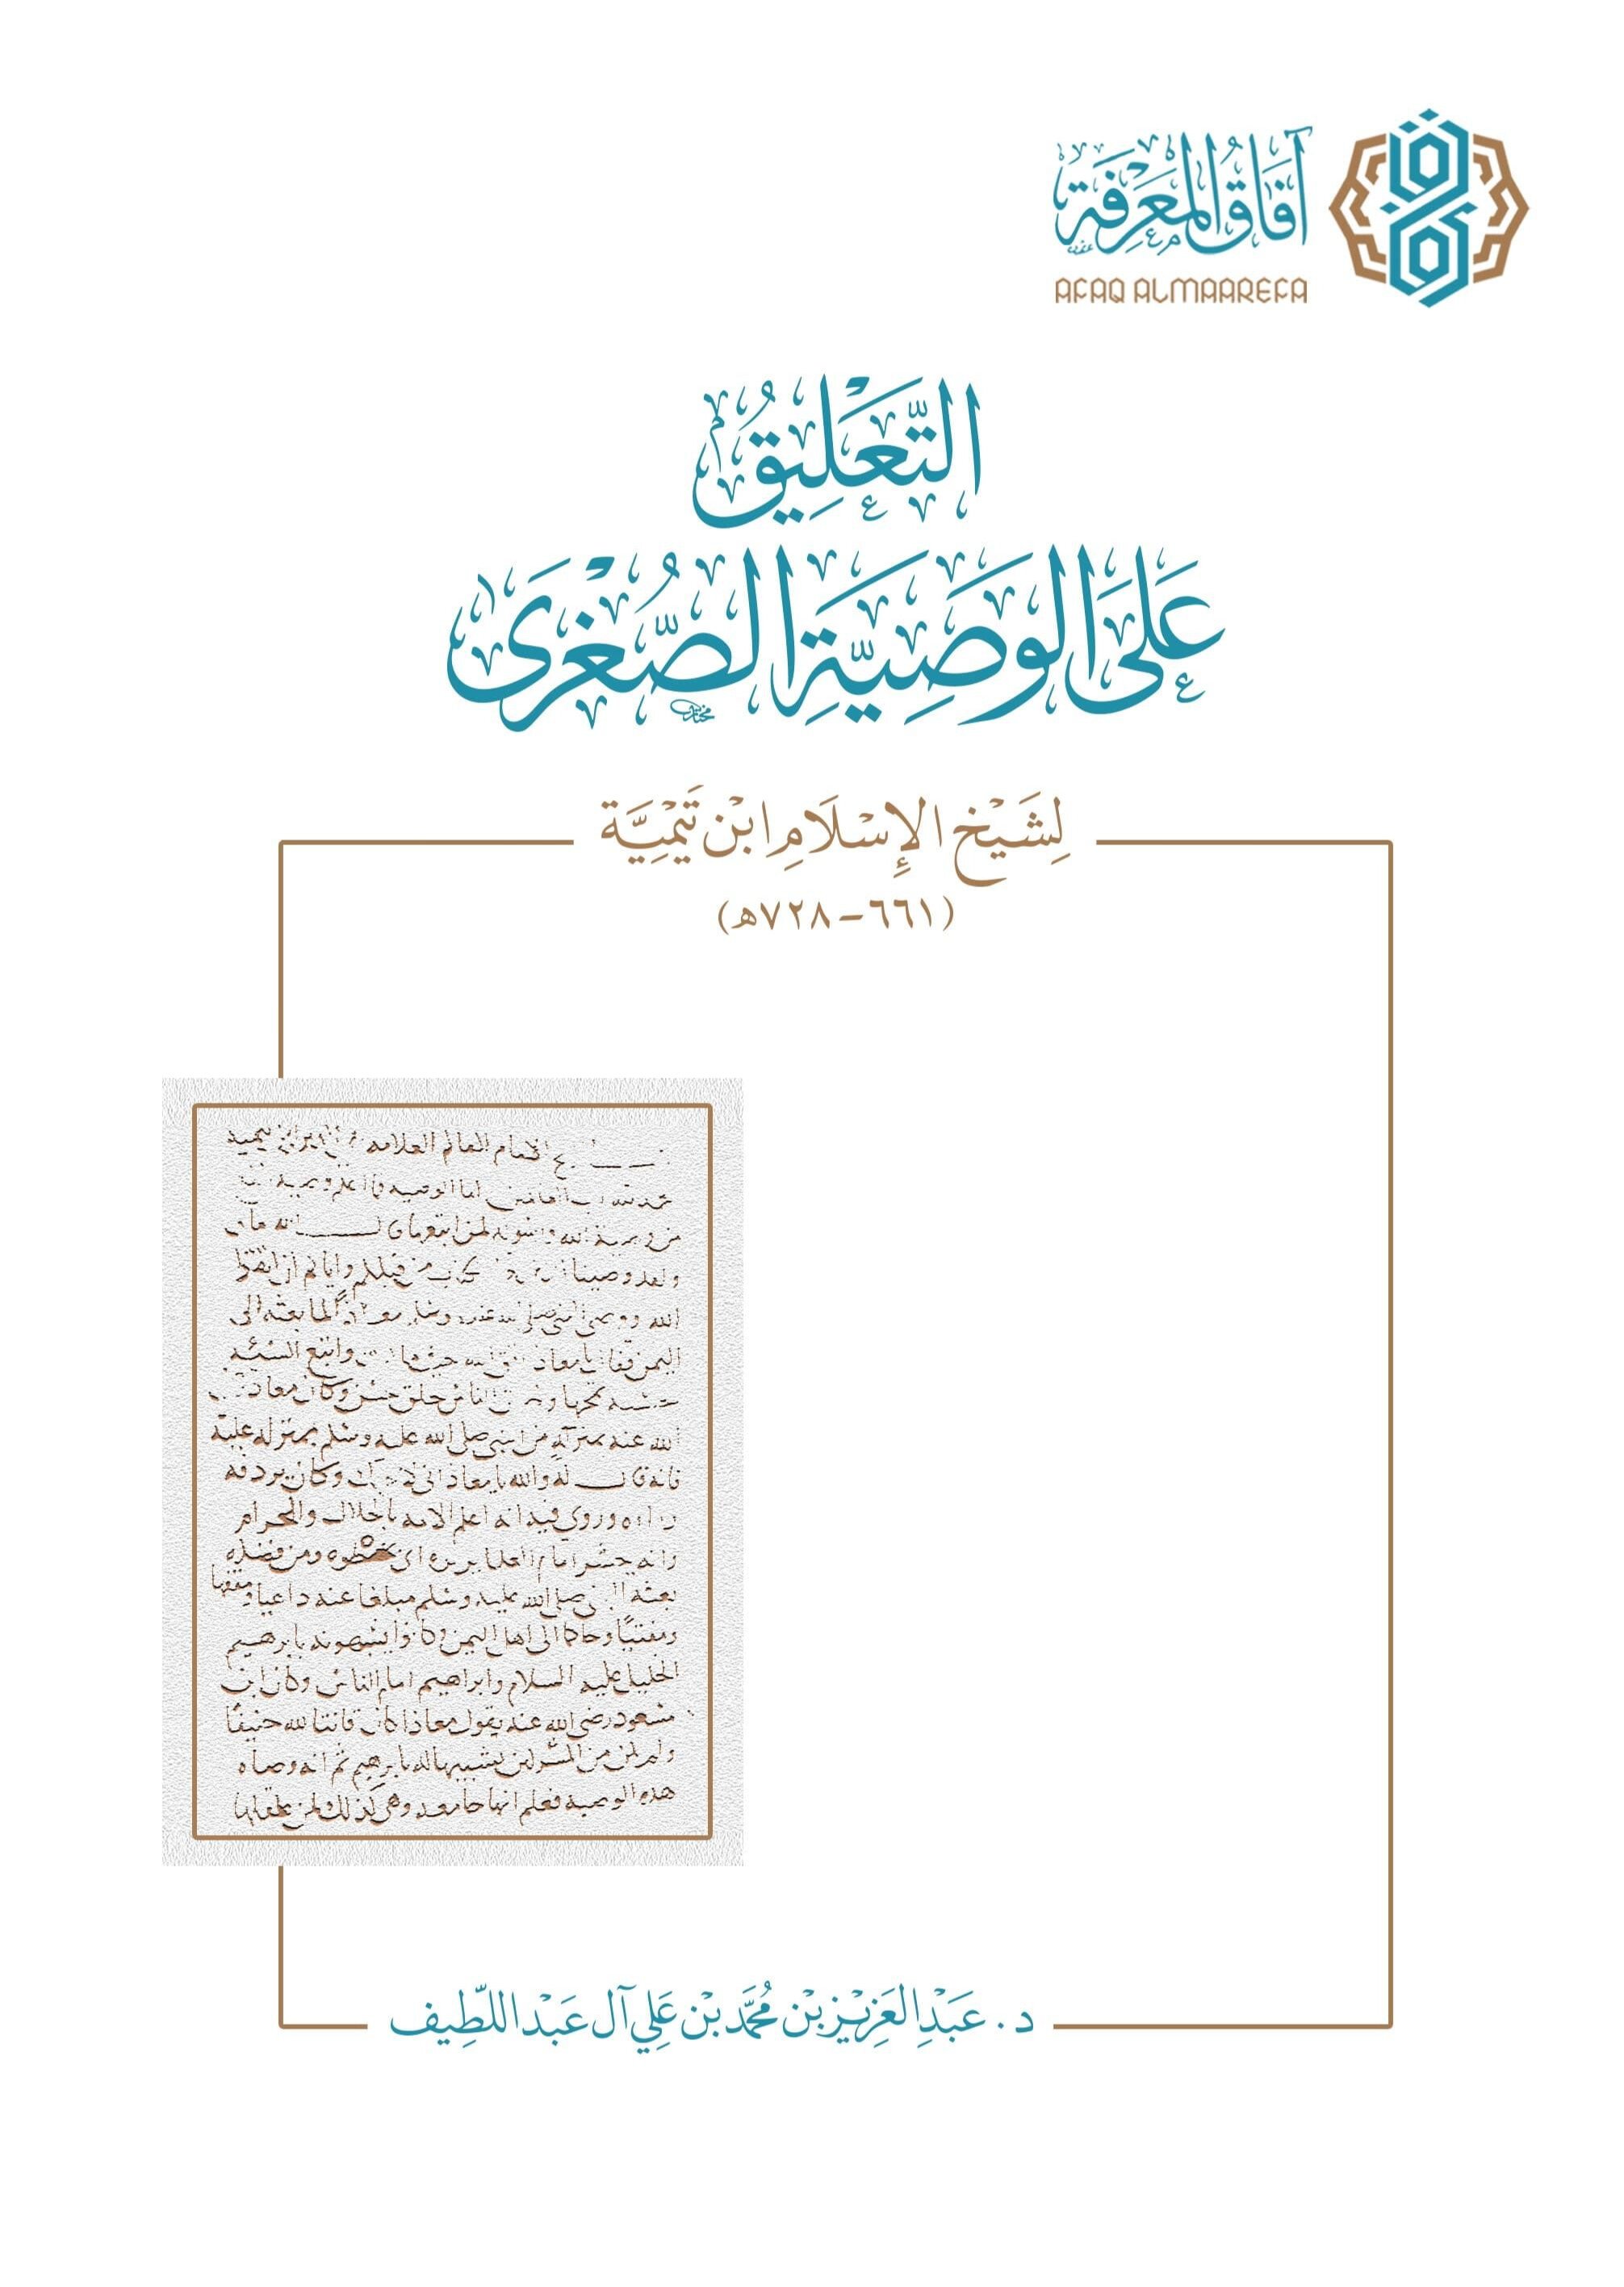 آفَاقُ المَعْرِفَة
AFAQ ALMAAREFA
التَّعْلِيقُ
عَلَى الوَصِيَّةِ الصُّغْرَى
لِشَيْخِ الإِسْلَامِ ابْن تَيْمِيَّة
(٦٦١ – ٧٢٨هـ)
الامام العالم العلامه تيميه
اما الوصيه
لمن اتبعها
ولقد وصينا من قبلكم واياكم ان اتقوا
الله ووصى النبي صلى الله عليه وسلم معاذا لما بعثه الى
اليمن فقال يا معاذ اتق الله حيث ما واتبع السيئه
تمحها الناس خلق حسن وكان معاذ
الله عنه بمنزله من النبي صلى الله عليه وسلم بمنزله عليه
فانه قال له والله يا معاذ اني وكان يردفه
وراه وروي فيه انه اعلم الامه بالحلال والحرام
وانه يحشر امام العلما برتوه اي بخطوه ومن فضله
بعثه النبي صلى الله عليه وسلم مبلغا عنه داعيا ومفقها
ومفتيا وحاكما الى اهل اليمن وكانوا يشبهونه بابرهيم
الخليل عليه السلام وابراهيم امام الناس وكان ابن
مسعود رضي الله عنه يقول معاذا كان قانتا لله حنيفا
ولم يكن من المشركين يشبيها له بابرهيم ثم انه وصاه
هذه الوصيه فعلم انها جامعه وهي كذلك لمن عقلها
د. عَبْدِ العَزِيْزِ بْن مُحَمَّد بْن عَلِي آل عَبْد اللَّطِيف